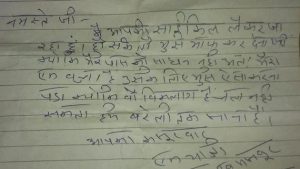 नमस्ते जी -
मैं आपकी साईकिल लेकर जा
रहा हूं। हो सके तो मुझे माफ कर देना जी
क्योंकि मेरे पास कोई साधन नहीं था। मेरा
एक बच्चा है उसके लिए मुझे ऐसा करना
पड़ा क्योंकि वो विकलांग है। चल नहीं
सकता हमें बरेली तक जाना है।
आपका कसूरवार
एक यात्री
मजबूर